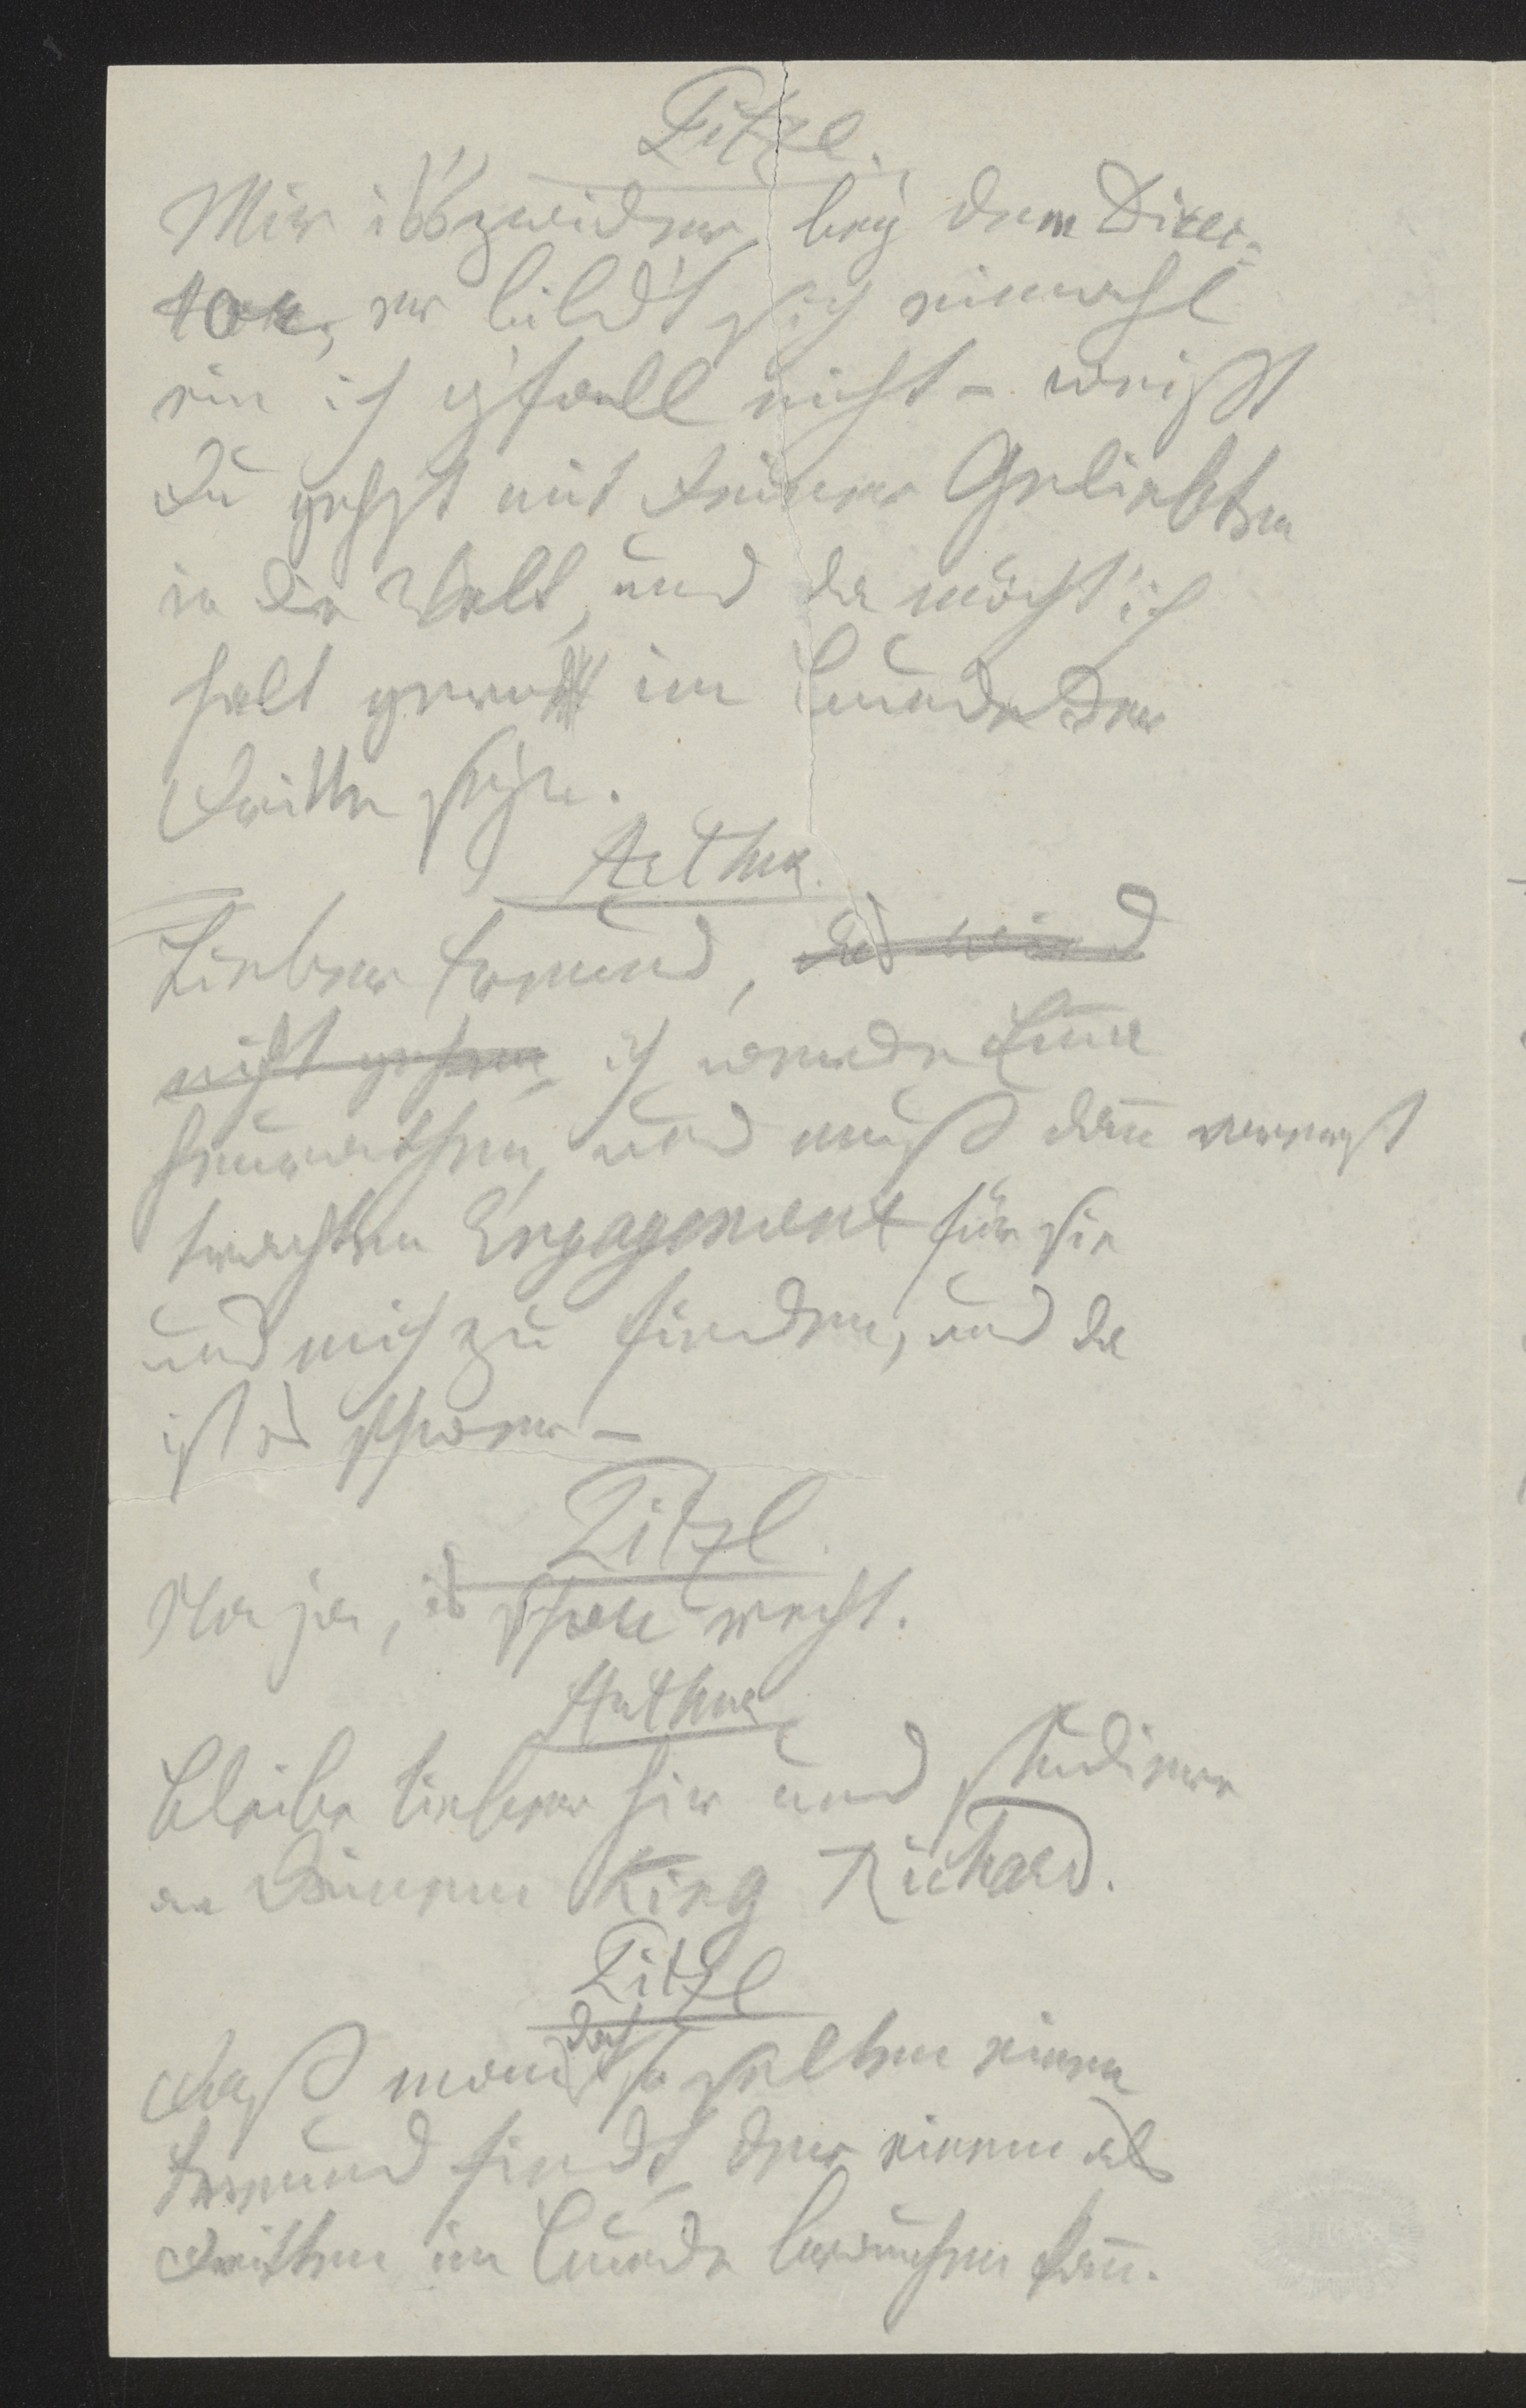 Titzl.
Mir is's zwider bey dem Direc-
tor, er bild't sich einmahl
ein ich g'fall nicht – weißt
Du gehst mit Deiner Geliebten
in die Welt, und da möcht' ich
halt gern im Bunde der
Dritte seyn.
Arthur.
Lieber Freund, das wird
nicht gehen, ich werde Emma
heurathen, und muß dann vorerst
trachten Engagement für sie
und mich zu finden, und da
ist es schwer –
Titzl.
Na ja, is schon recht.
Arthur
Bleibe lieber hier und studiere
an Deinem King Richard.
Titzl
Daß man doch so selten einen
Freund find't, der einen als
Dritten im Bunde brauchen kann.